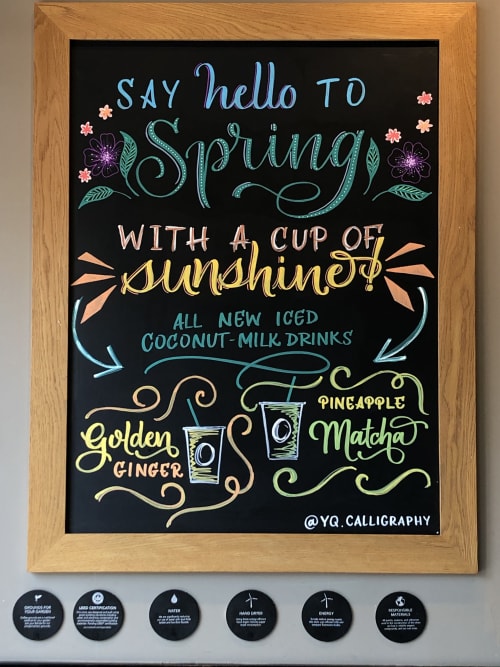 SAY hello TO
Spring
WITH A CUP OF
sunshine!
ALL NEW ICED
COCONUT-MILK DRINKS
Golden
GINGER
PINEAPPLE
Matcha
@YQ.CALLIGRAPHY
GROUNDS FOR
YOUR GARDEN
LEED CERTIFICATION
WATER
HAND DRYER
ENERGY
RESPONSIBLE
MATERIALS